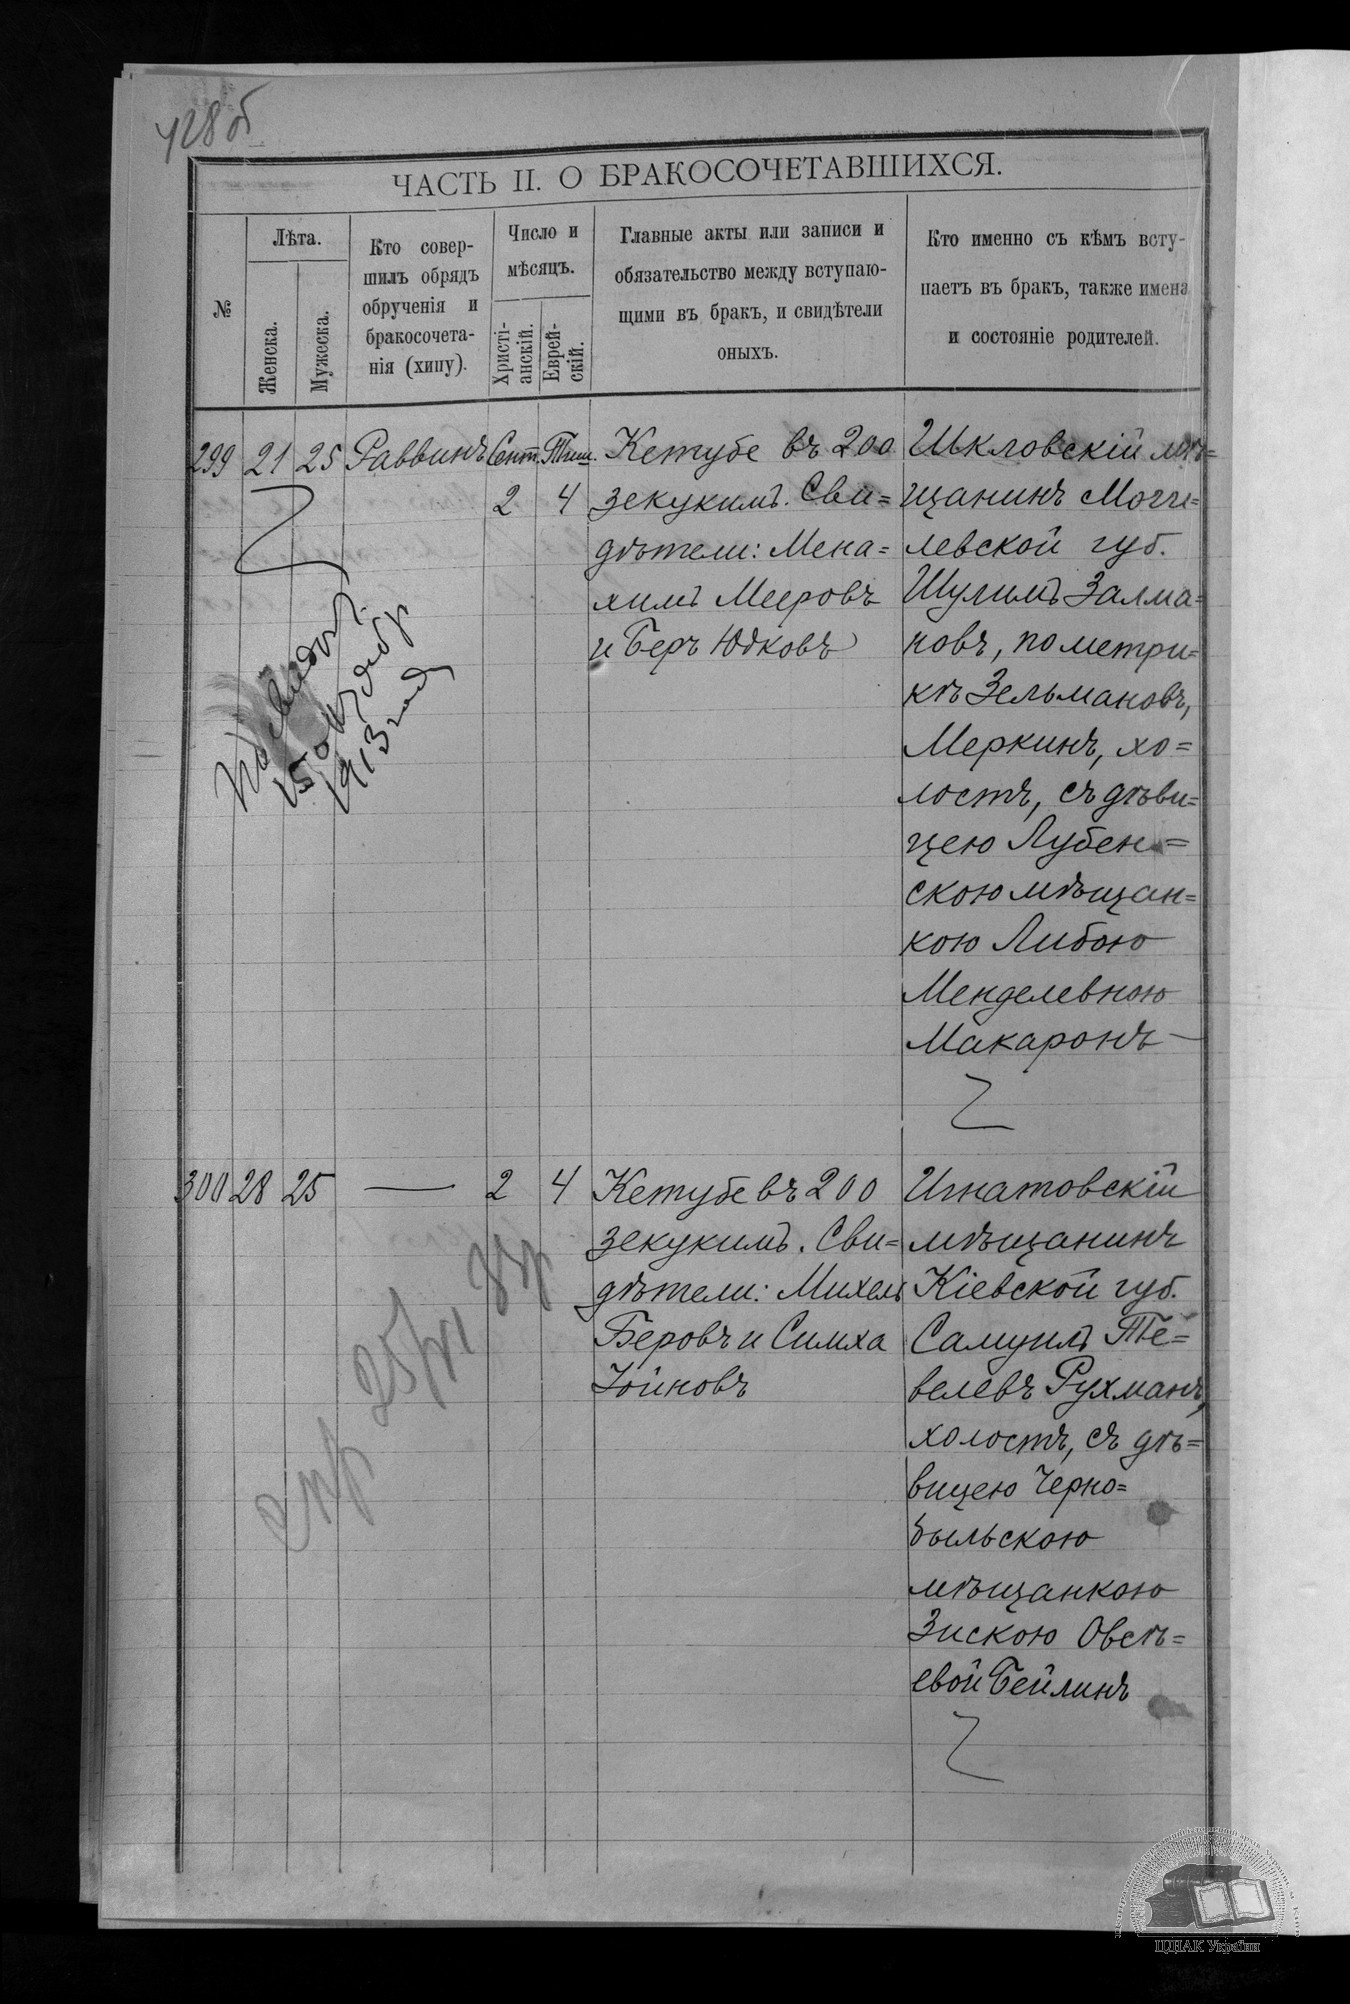 428 об
ЧАСТЬ II. О БРАКОСОЧЕТАВШИХСЯ.
№
Лѣта.
Женска.
Мужеска.
Кто совер-
шилъ обрядъ
обрученія и
бракосочета-
нія (хипу).
Число и
мѣсяцъ.
Христі-
анскій.
Еврей-
скій.
Главные акты или записи и
обязательство между вступаю-
щими въ бракъ, и свидѣтели
оныхъ.
Кто именно съ кѣмъ всту-
паетъ въ бракъ, также имена
и состояніе родителей.
299 21 25 Раввинъ Сент. Тиш.
2 4
Кетубе въ 200
зекукимъ. Сви=
дѣтели: Мена=
химъ Мееровъ
и Беръ Юдковъ
Шкловскій мѣ=
щанинъ Моги=
левской губ.
Шулимъ Залма=
новъ, по метри=
кѣ Зельмановъ,
Меркинъ, хо=
лостъ, съ дѣви=
цею Лубен=
скою мѣщан=
кою Либою
Менделевною
Макаронъ
15
1913 год
300 28 25 — 2 4
Кетубе въ 200
зекукимъ. Сви=
дѣтели: Михель
Беровъ и Симха
Іойновъ
Игнатовскій
мѣщанинъ
Кіевской губ.
Самуилъ Те=
велевъ Рухманъ,
холостъ, съ дѣ=
вицею Черно=
быльскою
мѣщанкою
Зискою Овсѣ=
евой Бейлинъ
ЦДІАК України